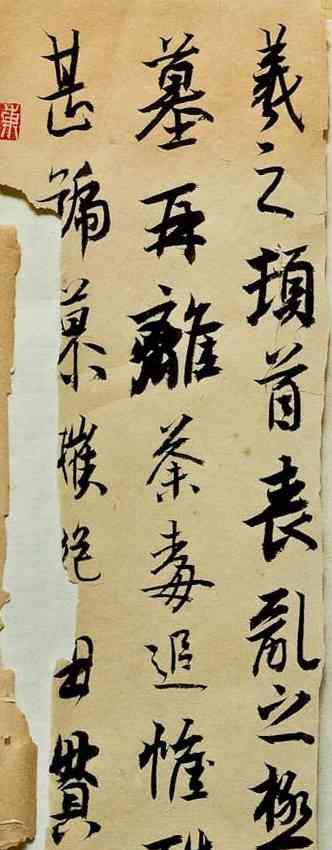 羲之頓首喪亂之極
墓再離荼毒追惟
甚號慕摧絕貫